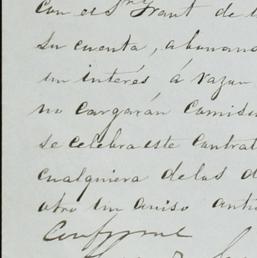 con el Sr Frant de l
su cuenta, abonand
un interés á razon
no cargarán comisi
se celebra este contrat
cualquiera de las d
otro un aviso anti
Conforme